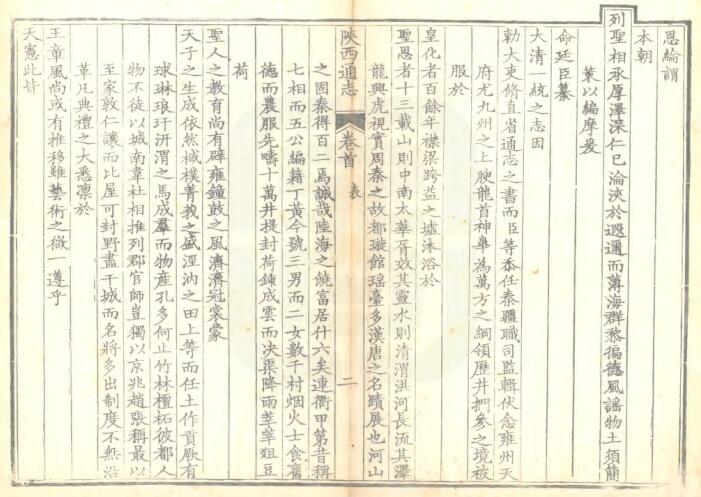 恩綸謂
本朝
列聖相承厚澤深仁已淪浹於遐邇而薄海群黎徧德風謠物土須簡
策以編摩爰
命廷臣纂
大清一統之志因
勅大吏脩直省通志之書而臣等忝任秦疆職司監輯伏念雍州天
府尤九州之上腴龍首神臯為萬方之綱領歷井捫參之境被
服於
皇化者百餘年襟梁跨益之墟沐浴於
聖恩者十三載山則中南太華胥效其靈水則清渭洪河長流其澤
龍興虎視實周秦之故都璇館瑶臺多漢唐之名蹟展也河山
陝西通志
卷首
表
二
之固秦得百二焉誠哉陸海之饒富居什六矣連衢甲第昔稱
七相而五公編籍丁黃今號三男而二女數千村烟火士食舊
德而農服先疇十萬井提封荷鍤成雲而决渠降雨莘莘俎豆
荷
聖人之教育尚有辟雍鐘鼓之風濟濟冠裳蒙
天子之生成依然棫樸菁莪之盛涇汭之田上等而任土作貢厥有
球琳琅玕汧渭之馬成羣而物產孔多何止竹林檀柘彼都人
物不徒以城南韋杜相推列郡官師豈獨以京兆趙張稱最以
至家敦仁讓而比屋可封野盡干城而名將多出制度不無沿
革凡典禮之大悉凛於
王章風尚或有推移雖藝術之微一遵乎
天憲此皆